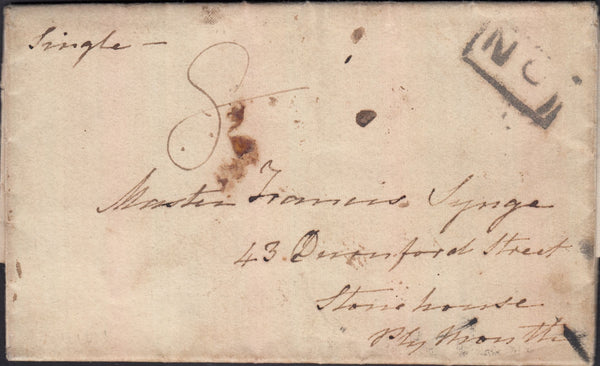 Single —
8
No 1
Master Francis Synge
43 Durnford Street
Stonehouse
Plymouth